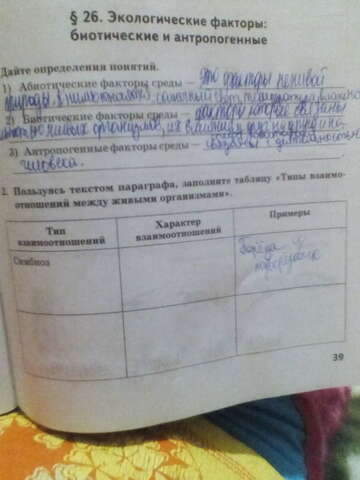 § 26. Экологические факторы:
биотические и антропогенные
Дайте определения понятий.
1) Абиотические факторы среды — Это факторы неживой
природы. К ним относятся солнечный свет, температура, влажность
2) Биотические факторы среды — факторы которые связаны
живых организмов, их влияния друг на друга
3) Антропогенные факторы среды — связаны с деятельностью
человека.
2. Пользуясь текстом параграфа, заполните таблицу «Типы взаимо-
отношений между живыми организмами».
Тип
взаимоотношений
Характер
взаимоотношений
Примеры
Симбиоз
Берёза и
подберёзовик
39